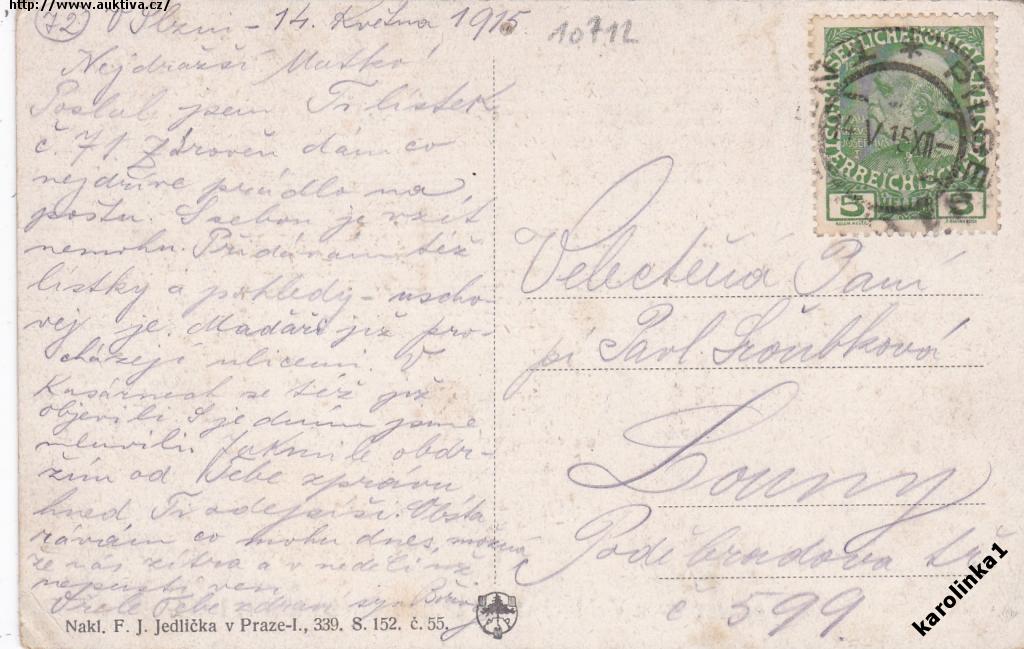 http://www.auktiva.cz/
72 V Plzni - 14. Května 1915.
10712
Nejdražší Matko!
Poslal jsem Ti lístek
č. 71. Zároveň dám co
nejdříve prádlo na
poštu. S sebou je vzít
nemohu. Přidávám též
lístky a pohledy - uscho-
vej je. Maďaři již pro-
cházejí ulicemi. V
Kasárnech se též již
objevili. S jedním jsme
mluvili. Jakmile obdr-
žím od Tebe zprávu
hned Ti odepíši. Obsta
rávám co mohu dnes, možná
že nás zítra a neděli už
nepustí ven.
Vřele Tebe zdraví syn
Velectěná Paní
pí Pavl. Šroubková
Louny
Poděbradova tř.
č. 599.
KAISERLICHE KÖNIGLICHE
ÖSTERREICHISCHE
5 HELLER 5
14 V 15 XII
Nakl. F. J. Jedlička v Praze-I., 339. S. 152. č. 55.
karolinka1